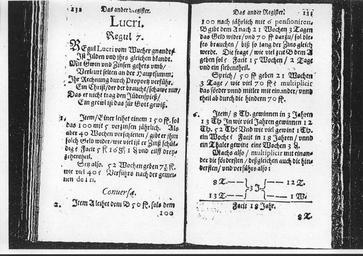 232 Das ander Register.
Lucri.
Regul 7.
Regul Lucri vom Wucher genandt/
Ist Jüden und ihrs gleichen bkandt.
Mit Gwin und Zinsen gehets umb/
Verkeurt selten an der Hauptsumm/
Ihr Rechnung durch Proporz verführ/
Ein Christ/der der braucht/schawe nur/
Das er nicht trag den Jüdenspieß/
Ein grewl ist das für Gott gewiß.
1. Item/Einer leihet einem 150 ff. sol
das 100 mit 5 verzinsen jährlich. Als
aber 40 Wochen verschienen/gab er ihm
solch Geld wider/wie viel ist er Zinß schül-
dig
52 Wochen geben 7½ ff.
wie viel 40? Verführs nach der gemei-
nen
Conversæ.
2. Item A leihet dem B 50 ff. sols dem
100
Das ander Register. 233
100 nach jährlich mit 6 pensioniren.
B gibt dem A nach 21 Wochen 3 Tagen
das Geld wider/und 70 ff darzu/sol die-
sto brauchen/ biß so lang der Zins gleich
werde. Die frage/ wie viel zeit B dem A
gehen sol? Facit 15 Wochen 2 Tage/ und
ein sechstentheil.
Sprich/ 50 ff geben 21 Wochen
3 Tage/ wie viel 70 ff? multiplicir
das förder und mitler mit einander/ und
theil ab durch die hindern 70 ff.
6. Item/ 8 Th. gewinnen in 3 Jahren
13 Th In wie viel Jahren gewinnen 12
Th. 52 Th? Und wie viel gewinnet 1 Th.
ein Woche? Facit in 18 Jahren/ und
ein Thaler gewine eine Wochen 3 ₰.
Machs also/ multiplicir mit einan-
der die fördersten/ desgleichen auch die hin-
dersten/ und versührs also:
8 T. 12 T.
3 J
13 T. 1 W.
Facit 18 Jahr.
8 T.